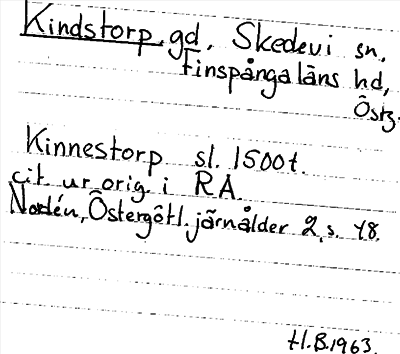 Kindstorp, gd, Skedevi sn,
Finspånga läns hd,
Östg.
Kinnestorp sl. 1500t.
cit. ur orig. i RA.
Nordén, Östergötl. järnålder 2, s. 48.
H.B.1963.